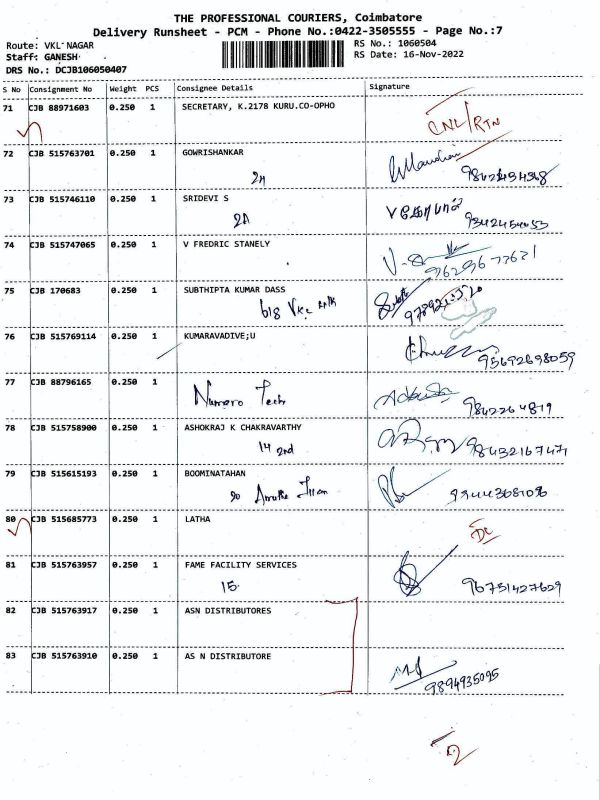 THE PROFESSIONAL COURIERS, Coimbatore
Delivery Runsheet - PCM - Phone No.:0422-3505555 - Page No.:7
Route: VKL NAGAR
RS No.: 1060504
Staff: GANESH
RS Date: 16-Nov-2022
DRS No.: DCJB106050407
S No Consignment No Weight PCS Consignee Details Signature
71 CJB 88971603 0.250 1 SECRETARY, K.2178 KURU.CO-OPHO
CNL/RTN
72 CJB 515763701 0.250 1 GOWRISHANKAR
2A
73 CJB 515746110 0.250 1 SRIDEVI S
2A 9342454053
74 CJB 515747065 0.250 1 V FREDRIC STANELY
75 CJB 170683 0.250 1 SUBTHIPTA KUMAR DASS
618 VKL
76 CJB 515769114 0.250 1 KUMARAVADIVE;U
95692698059
77 CJB 88796165 0.250 1
Numaro Tech 9842264819
78 CJB 515758900 0.250 1 ASHOKRAJ K CHAKRAVARTHY
14 2nd 98432167471
79 CJB 515615193 0.250 1 BOOMINATAHAN
80 CJB 515685773 0.250 1 LATHA
DL
81 CJB 515763957 0.250 1 FAME FACILITY SERVICES
15 96751427629
82 CJB 515763917 0.250 1 ASN DISTRIBUTORES
83 CJB 515763910 0.250 1 AS N DISTRIBUTORE
9894935095
2